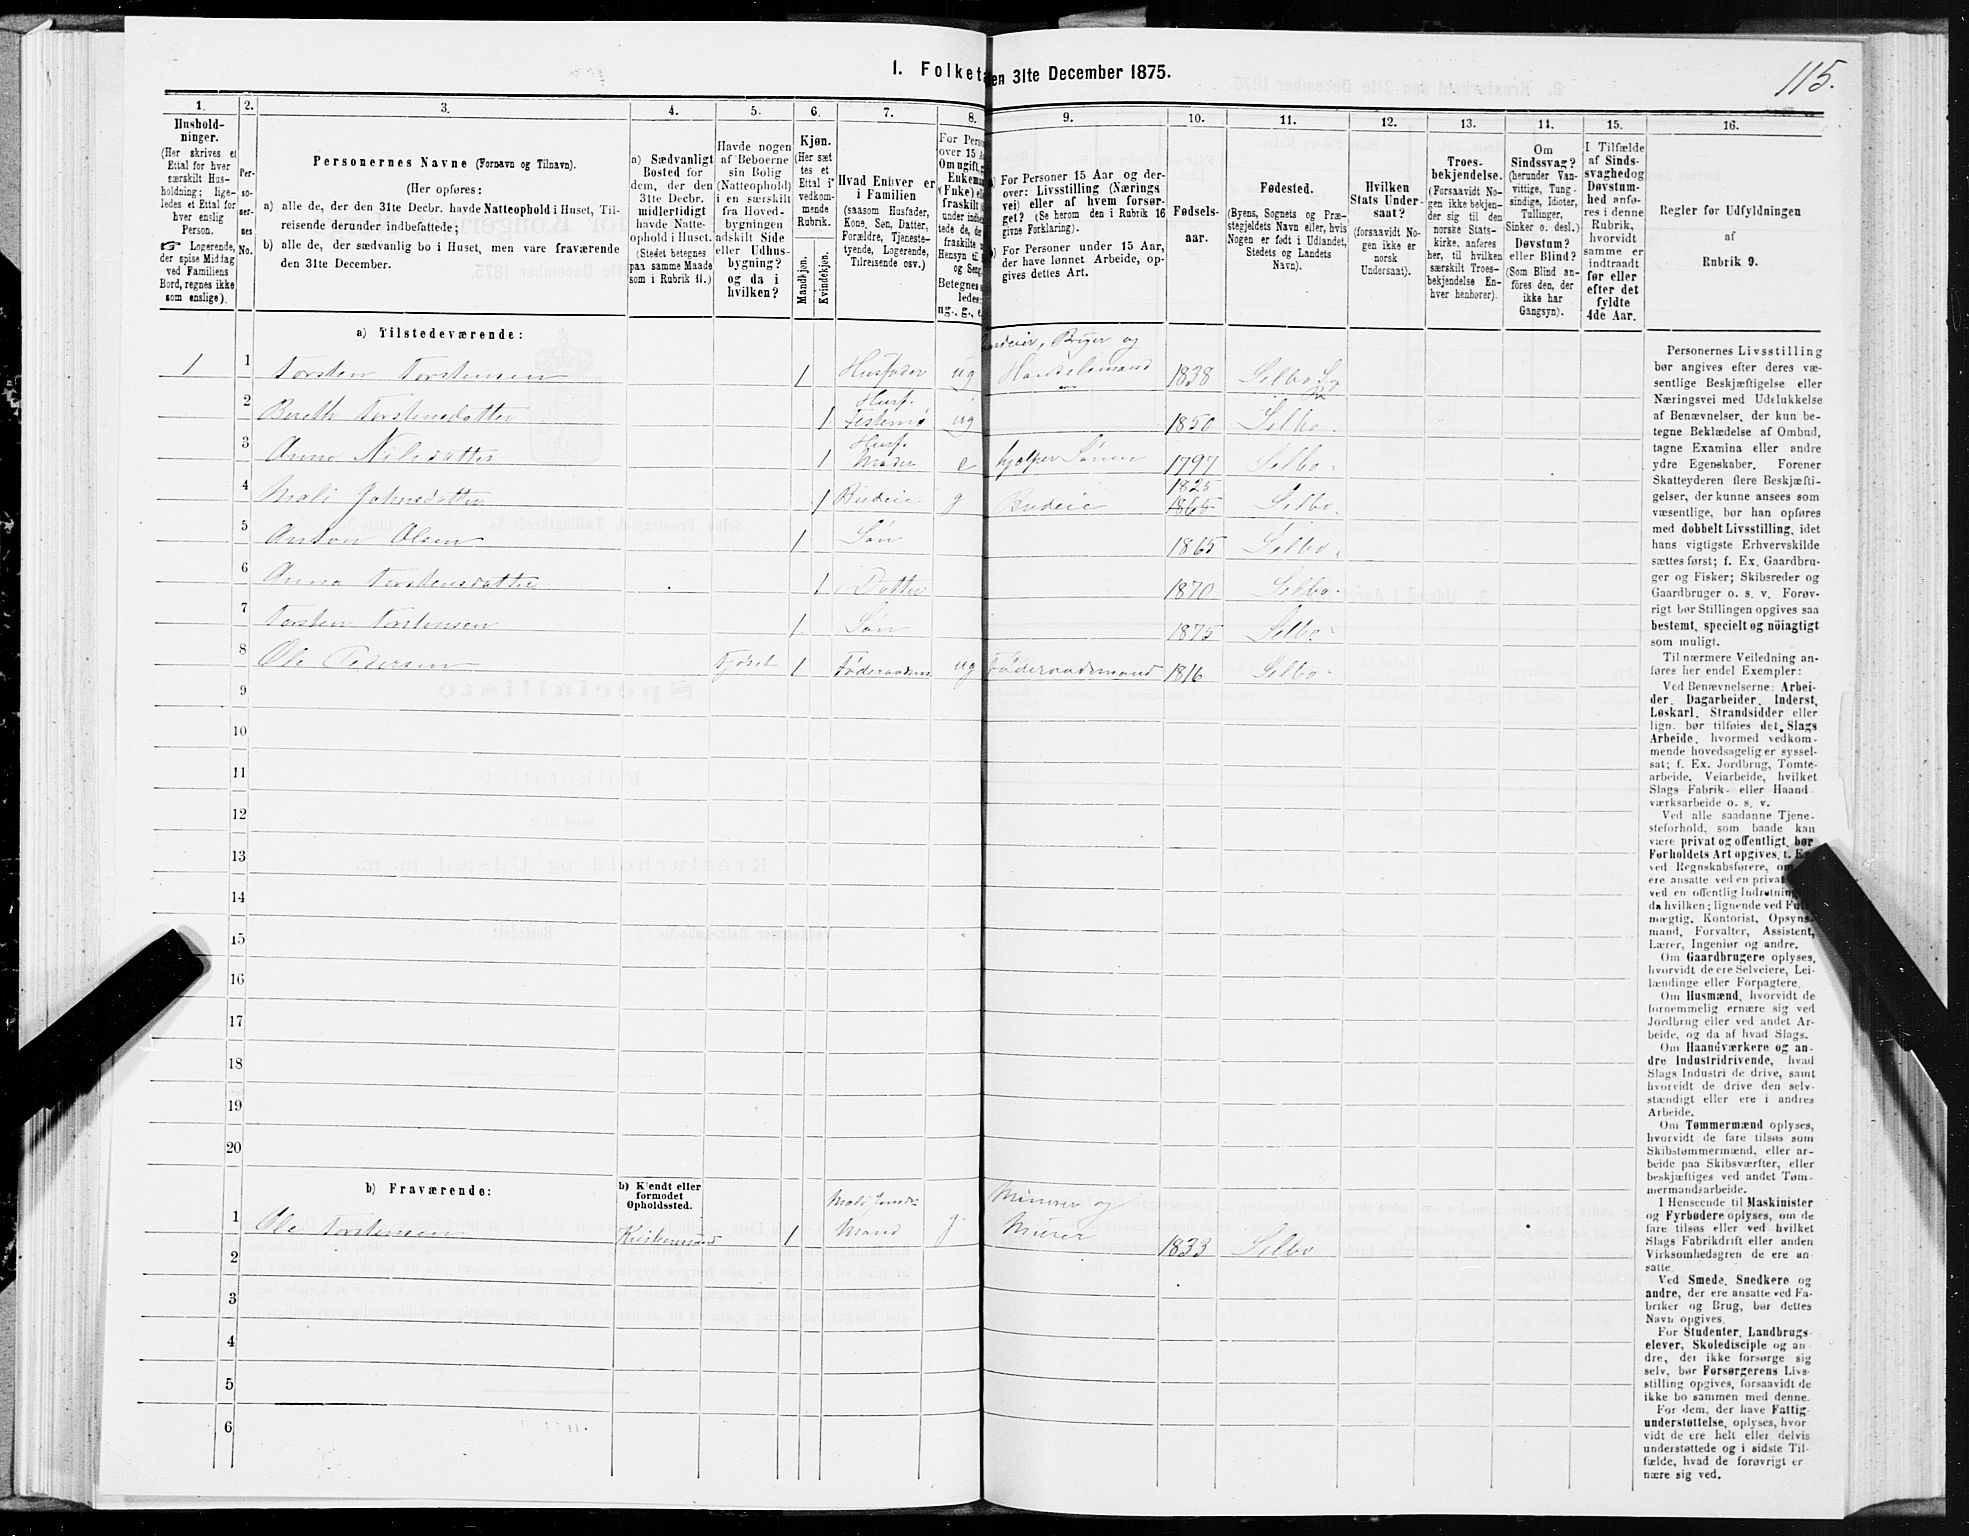 115.
1. Folketæ
en 31te December 1875.
1.
2.
3.
4.
5.
6.
7.
8.
9.
10.
11.
12.
13.
14.
15.
16.
Hushold-
ninger.
(Her skrives et
Ettal for hver
særskilt Hus-
holdning; lige-
ledes et Ettal for
hver enslig
Person.
☞ Logerende,
der spise Middag
ved Familiens
Bord, regnes ikke
som enslige).
Per-
so-
ner-
nes
No.
Personernes Navne (Fornavn og Tilnavn).
(Her opføres:
a) alle de, der den 31te Decbr. havde Natteophold i Huset, Til-
reisende derunder indbefattede;
b) alle de, der sædvanlig bo i Huset, men vare fraværende
den 31te December.
a) Sædvanligt
Bosted for
dem, der den
31te Decbr.
midlertidigt
havde Natte-
ophold i Huset.
(Stedet betegnes
paa samme Maade
som i Rubrik 11.)
Havde nogen
af Beboerne
sin Bolig
(Natteophold)
i en særskilt
fra Hoved-
bygningen
adskilt Side
eller Udhus-
bygning?
og da i
hvilken?
Kjøn.
(Her sæt
tes et
Ettal i
vedkom-
mende
Rubrik.
Mandkjøn.
Kvindekjøn.
Hvad Enhver er
i Familien
(saasom Husfader,
Kone, Søn, Datter,
Forældre, Tjeneste-
tyende, Logerende,
Tilreisende osv.)
For Pers
over 15 A
Om ugift,
Enkema
(Enke) el
fraskilt
under indbe
tede de, d
fraskilte
Hensyn til
og Seng.
Betegnes
ledes:
ug., g., e
) For Personer 15 Aar og der-
over: Livsstilling (Nærings
vei) eller af hvem forsør-
get? (Se herom den i Rubrik 16
givne Forklaring).
) For Personer under 15 Aar,
der have lønnet Arbeide, op-
gives dettes Art.
Fødsels-
aar.
Fødested.
(Byens, Sognets og Præ-
stegjeldets Navn eller, hvis
Nogen er født i Udlandet,
Stedets og Landets
Navn).
Hvilken
Stats Under-
saat?
(forsaavidt No-
gen ikke er
norsk
Undersaat).
Troes-
bekjendelse.
(Forsaavidt No-
gen ikke bekjen-
der sig til den
norske Stats-
kirke, anføres
her, til hvilken
særskilt Troes-
bekjendelse En-
hver henhører).
Om
Sindssvag?
(herunder Van-
vittige, Tung-
sindige, Idioter,
Tullinger,
Sinker o. desl.)
Døvstum?
eller Blind?
(Som Blind an-
føres den, der
ikke har
Gangsyn).
I Tilfælde
af Sinds-
svaghed og
Døvstum-
hed anfø-
res i denne
Rubrik,
hvorvidt
samme er
indtraadt
før eller
efter det
fyldte
4de Aar.
Regler før Udfyldningen
af
Rubrik 9.
a) Tilstedeværende:
1 1 Torsten Torstensen 1 Husfader ug deier, Bruger og Handelsmand 1838 Selbo
2 Bereth Torstensdatter 1 Husf. Festemø ug 1850 Selbo
3 Anne Nilsdatter 1 Husf. Moder e hjælper Sønnen 1797 Selbo
4 Mali Jahnsdatter 1 Budeie g Budeie 1825 1865 Selbo
5 Anton Olsen 1 Søn 1865 Selbo
6 Anna Torstensdatter 1 Datter 1870 Selbo
7 Torsten Torstensen 1 Søn 1875 Selbo
8 Ole Pedersen Fjøset 1 Føderaadsm ug Føderaadsmand 1816 Selbo
9
10
11
12
13
14
15
16
17
18
19
20
b) Fraværende:
b) Kjendt eller
formodet
Opholdssted.
1 Ole Torstensen Kristiansund 1 Mali Mand g. Minerer og Murer 1833 Selbo
2
3
4
5
6
Personernes Livsstilling
bør angives efter deres væ-
sentlige Beskjæftigelse eller
Næringsvei med Udelukkelse
af Benævnelser, der kun be-
tegne Beklædelse af Ombud,
tagne Examina eller andre
ydre Egenskaber. Forener
Skatteyderen flere Beskjæfti-
gelser, der kunne ansees som
væsentlige, bør han opføres
med dobbelt Livsstilling, idet
hans vigtigste Erhvervskilde
sættes først; f. Ex. Gaardbru-
ger og Fisker; Skibsreder og
Gaardbruger o. s. v. Forøv-
rigt bør Stillingen opgives saa
bestemt, specielt og nöiagtigt
som muligt.
Til nærmere Veiledning an-
føres her endel Exempler:
Ved Benævnelserne: Arbei-
der, Dagarbeider, Inderst,
Løskarl, Strandsidder eller
lign. bør tilføies det Slags
Arbeide, hvormed vedkom-
mende hovedsagelig er syssel-
sat; f. Ex. Jordbrug, Tomte-
arbeide, Veiarbeide, hvilket
Slags Fabrik- eller Haand-
værksarbeide o. s. v.
Ved alle saadanne Tjene-
steforhold, som baade kan
være privat og offentligt, bør
Forholdets Art opgives, t. E
ved Regnskabsførere, o
ere ansatte ved en privat
ved en offentlig Indretning
da hvilken; lignende ved Fuld
mægtig, Kontorist, Opsyns-
mand, Forvalter, Assistent,
Lærer, Ingeniør og andre.
Om Gaardbrugere oplyses,
hvorvidt de ere Selveiere, Lei-
lændinge eller Forpagtere.
Om Husmænd, hvorvidt de
fornemmelig ernære sig ved
Jordbrug eller ved andet Ar-
beide, og da af hvad Slags.
Om Haandværkere og an-
dre Industridrivende, hvad
Slags Industri de drive, samt
hvorvidt de drive den selv-
stændigt eller ere i andres
Arbeide.
Om Tømmermænd oplyses,
hvorvidt de fare tilsøs som
Skibstømmermænd, eller ar-
beide paa Skibsværfter, eller
beskjæftiges ved andet Tøm-
mermandsarbeide.
I Henseende til Maskinister
og Fyrbødere oplyses, om de
fare tilsøs eller ved hvilket
Slags Fabrikdrift eller anden
Virksomhedsgren de ere an-
satte.
Ved Smede, Snedkere og
andre, der ere ansatte ved Fa-
briker og Brug, bør dettes
Navn opgives.
For Studenter, Landbrugs-
elever, Skoledisciple og an-
dre, der ikke forsørge sig
selv, bør Forsørgerens Livs-
stilling opgives, forsaavidt de
ikke bo sammen med denne.
For dem, der have Fattig-
understøttelse, oplyses, hvor-
vidt de ere helt eller delvis
understøttede og i sidste Til-
fælde, hvad de forøvrigt er
nære sig ved.